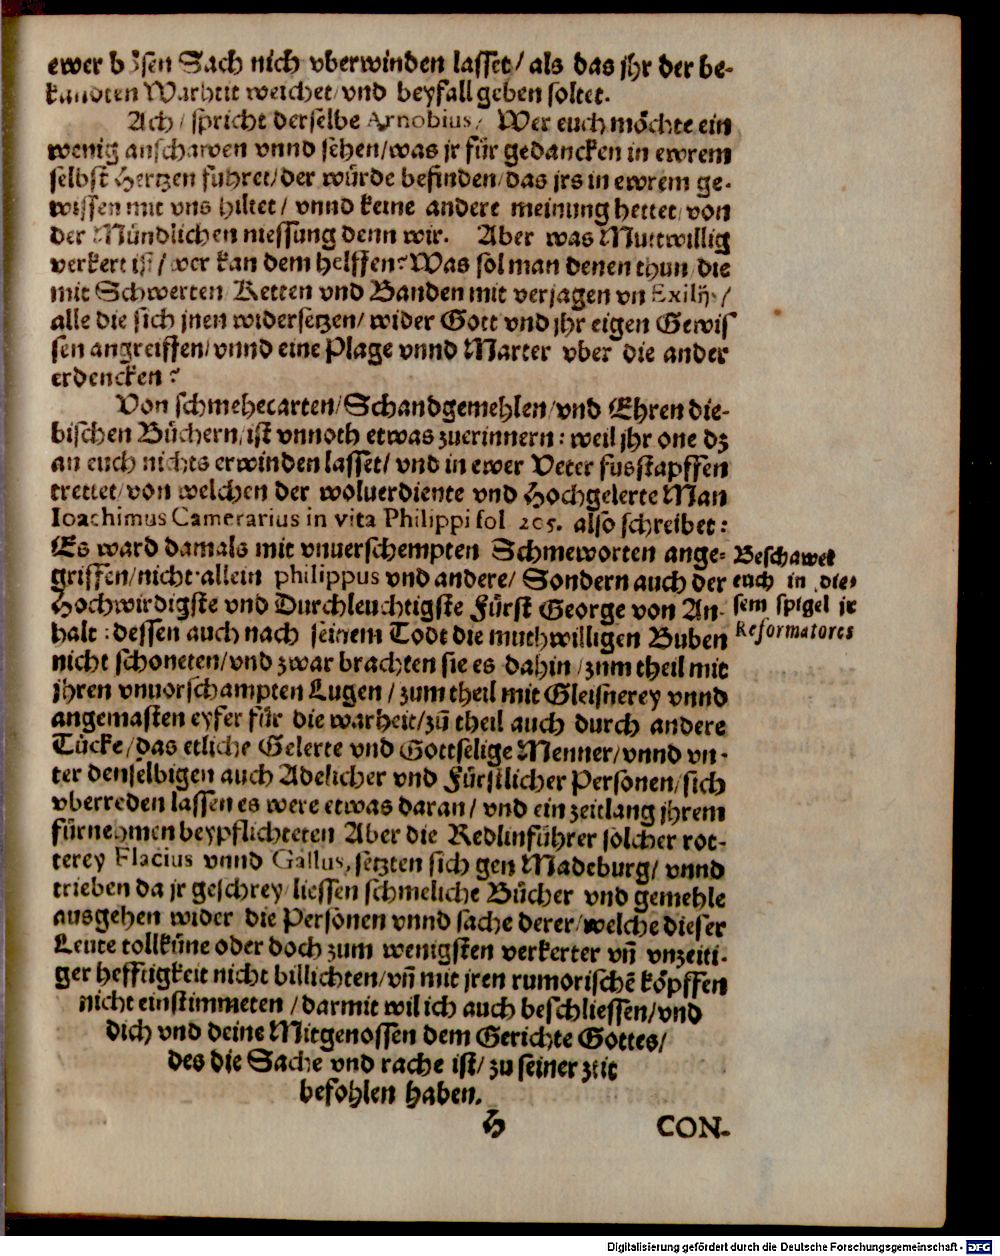 ewer bösen Sach nich vberwinden lasset/ als das jhr der be-
kandten Warheit weichet/ vnd beyfall geben soltet.
Ach/ spricht derselbe Arnobius/ Wer euch möchte ein
wenig anschawen vnnd sehen/was jr für gedancken in ewrem
selbst Hertzen führet/der würde befinden/das jrs in ewrem ge-
wissen mit vns hiltet/ vnnd keine andere meinung hettet/von
der Mündlichen niessung denn wir. Aber was Muttwillig
verkert ist/wer kan dem helffen? Was sol man denen thun/die
mit Schwerten/Ketten vnd Banden mit verjagen vn Exilijs/
alle die sich jnen widersetzen/ wider Gott vnd jhr eigen Gewis
sen angreiffen/vnnd eine Plage vnnd Marter vber die ander
erdencken?
Von schmehecarten/Schandgemehlen/vnd Ehren die-
bischen Büchern/ist vnnoth etwas zuerinnern: weil jhr one dz
an euch nichts erwinden lasset/ vnd in ewer Veter fusstapffen
trettet/von welchen der woluerdiente vnd Hochgelerte Man
Ioachimus Camerarius in vita Philippi fol 205. also schreibet:
Es ward damals mit vnuerschempten Schmeworten ange-
griffen/nicht allein philippus vnd andere/ Sondern auch der
Hochwirdigste vnd Durchleuchtigste Fürst George von An-
halt: dessen auch nach seinem Todt die muthwilligen Buben
nicht schoneten/vnd zwar brachten sie es dahin/zum theil mit
jhren vnuorschampten Lugen/zum theil mit Gleisnerey vnnd
angemasten eyfer für die warheit/zū theil auch durch andere
Tücke/das etliche Gelerte vnd Gottselige Menner/vnnd vn-
ter denselbigen auch Adelicher vnd Fürstlicher Personen/sich
vberreden lassen es were etwas daran/ vnd ein zeitlang jhrem
fürnehmen beypflichteten Aber die Redlinführer solcher rot-
terey Flacius vnnd Gallus, setzten sich gen Madeburg/ vnnd
trieben da jr geschrey/liessen schmeliche Bücher vnd gemehle
ausgehen wider die Personen vnnd sache derer/welche dieser
Leute tollküne oder doch zum wenigsten verkerter vn̄ vnzeiti-
ger hefftigkeit nicht billichten/vn̄ mit jren rumorischē köpffen
nicht einstimmeten/darmit wil ich auch beschliessen/vnd
dich vnd deine Mitgenossen dem Gerichte Gottes/
des die Sache vnd rache ist/ zu seiner zeit
befohlen haben.
Beschawet
euch in die-
sem spigel jr
Reformatores
H CON-
Digitalisierung gefördert durch die Deutsche Forschungsgemeinschaft - DFG